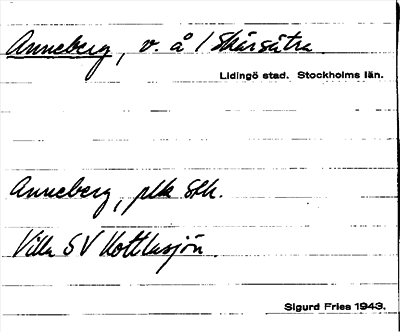 Anneberg, v. å 1 Skärsätra
Lidingö stad. Stockholms län.
Anneberg, plk Sth.
Villa SV Kottlasjön
Sigurd Fries 1943.